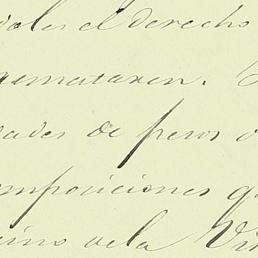 doles el derecho
rematasen.
dades de pesos
mposiciones q
sino dela Vi